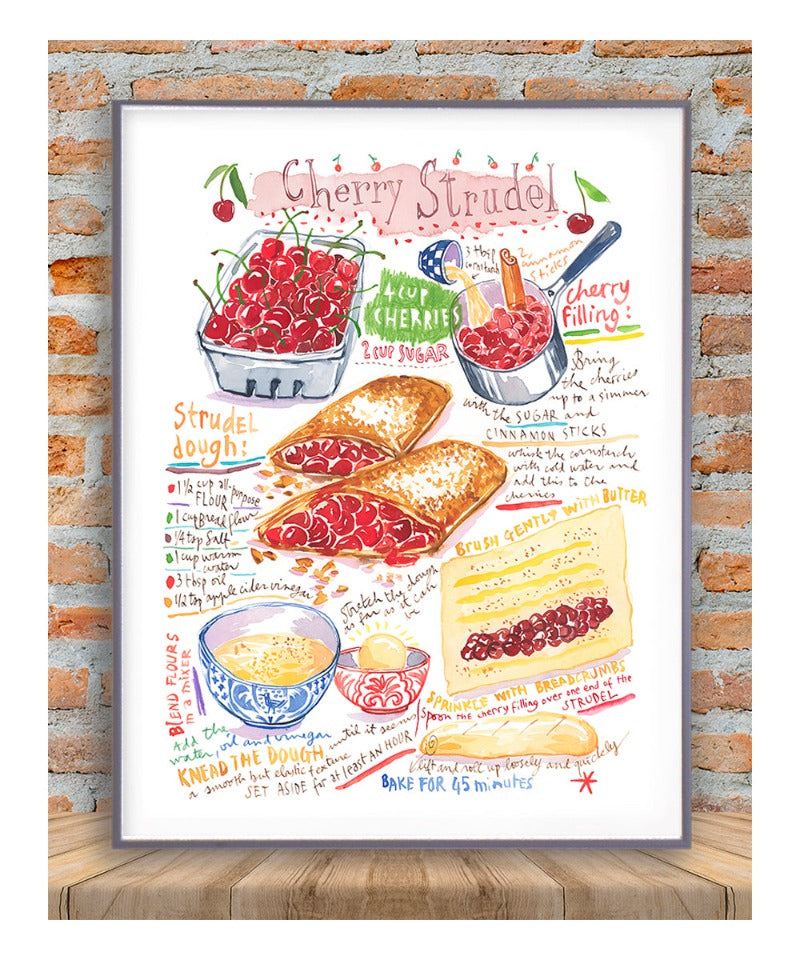 Cherry Strudel
3 tbsp
cornstarch
2
cinnamon
sticks
4 CUP
CHERRIES
2 CUP SUGAR
cherry
filling:
Bring
the cherries
up to a simmer
with the SUGAR and
CINNAMON STICKS
whisk the cornstarch
with cold water and
add this to the
cherries
Strudel
dough:
1 1/2 cup all-purpose
FLOUR
1 cup Bread flour
1/4 tsp salt
1 cup warm
water
3 tbsp oil
1/2 tsp apple cider vinegar
BLEND FLOURS
in a mixer
Add the
water/oil and vinegar
KNEAD THE DOUGH until it seems
a smooth but elastic texture
SET ASIDE for at least AN HOUR
Stretch the dough
as far as it can
BRUSH GENTLY WITH BUTTER
SPRINKLE WITH BREADCRUMBS
Spoon the cherry filling over one end of the
STRUDEL
Lift and roll up loosely and quickly
BAKE FOR 45 minutes